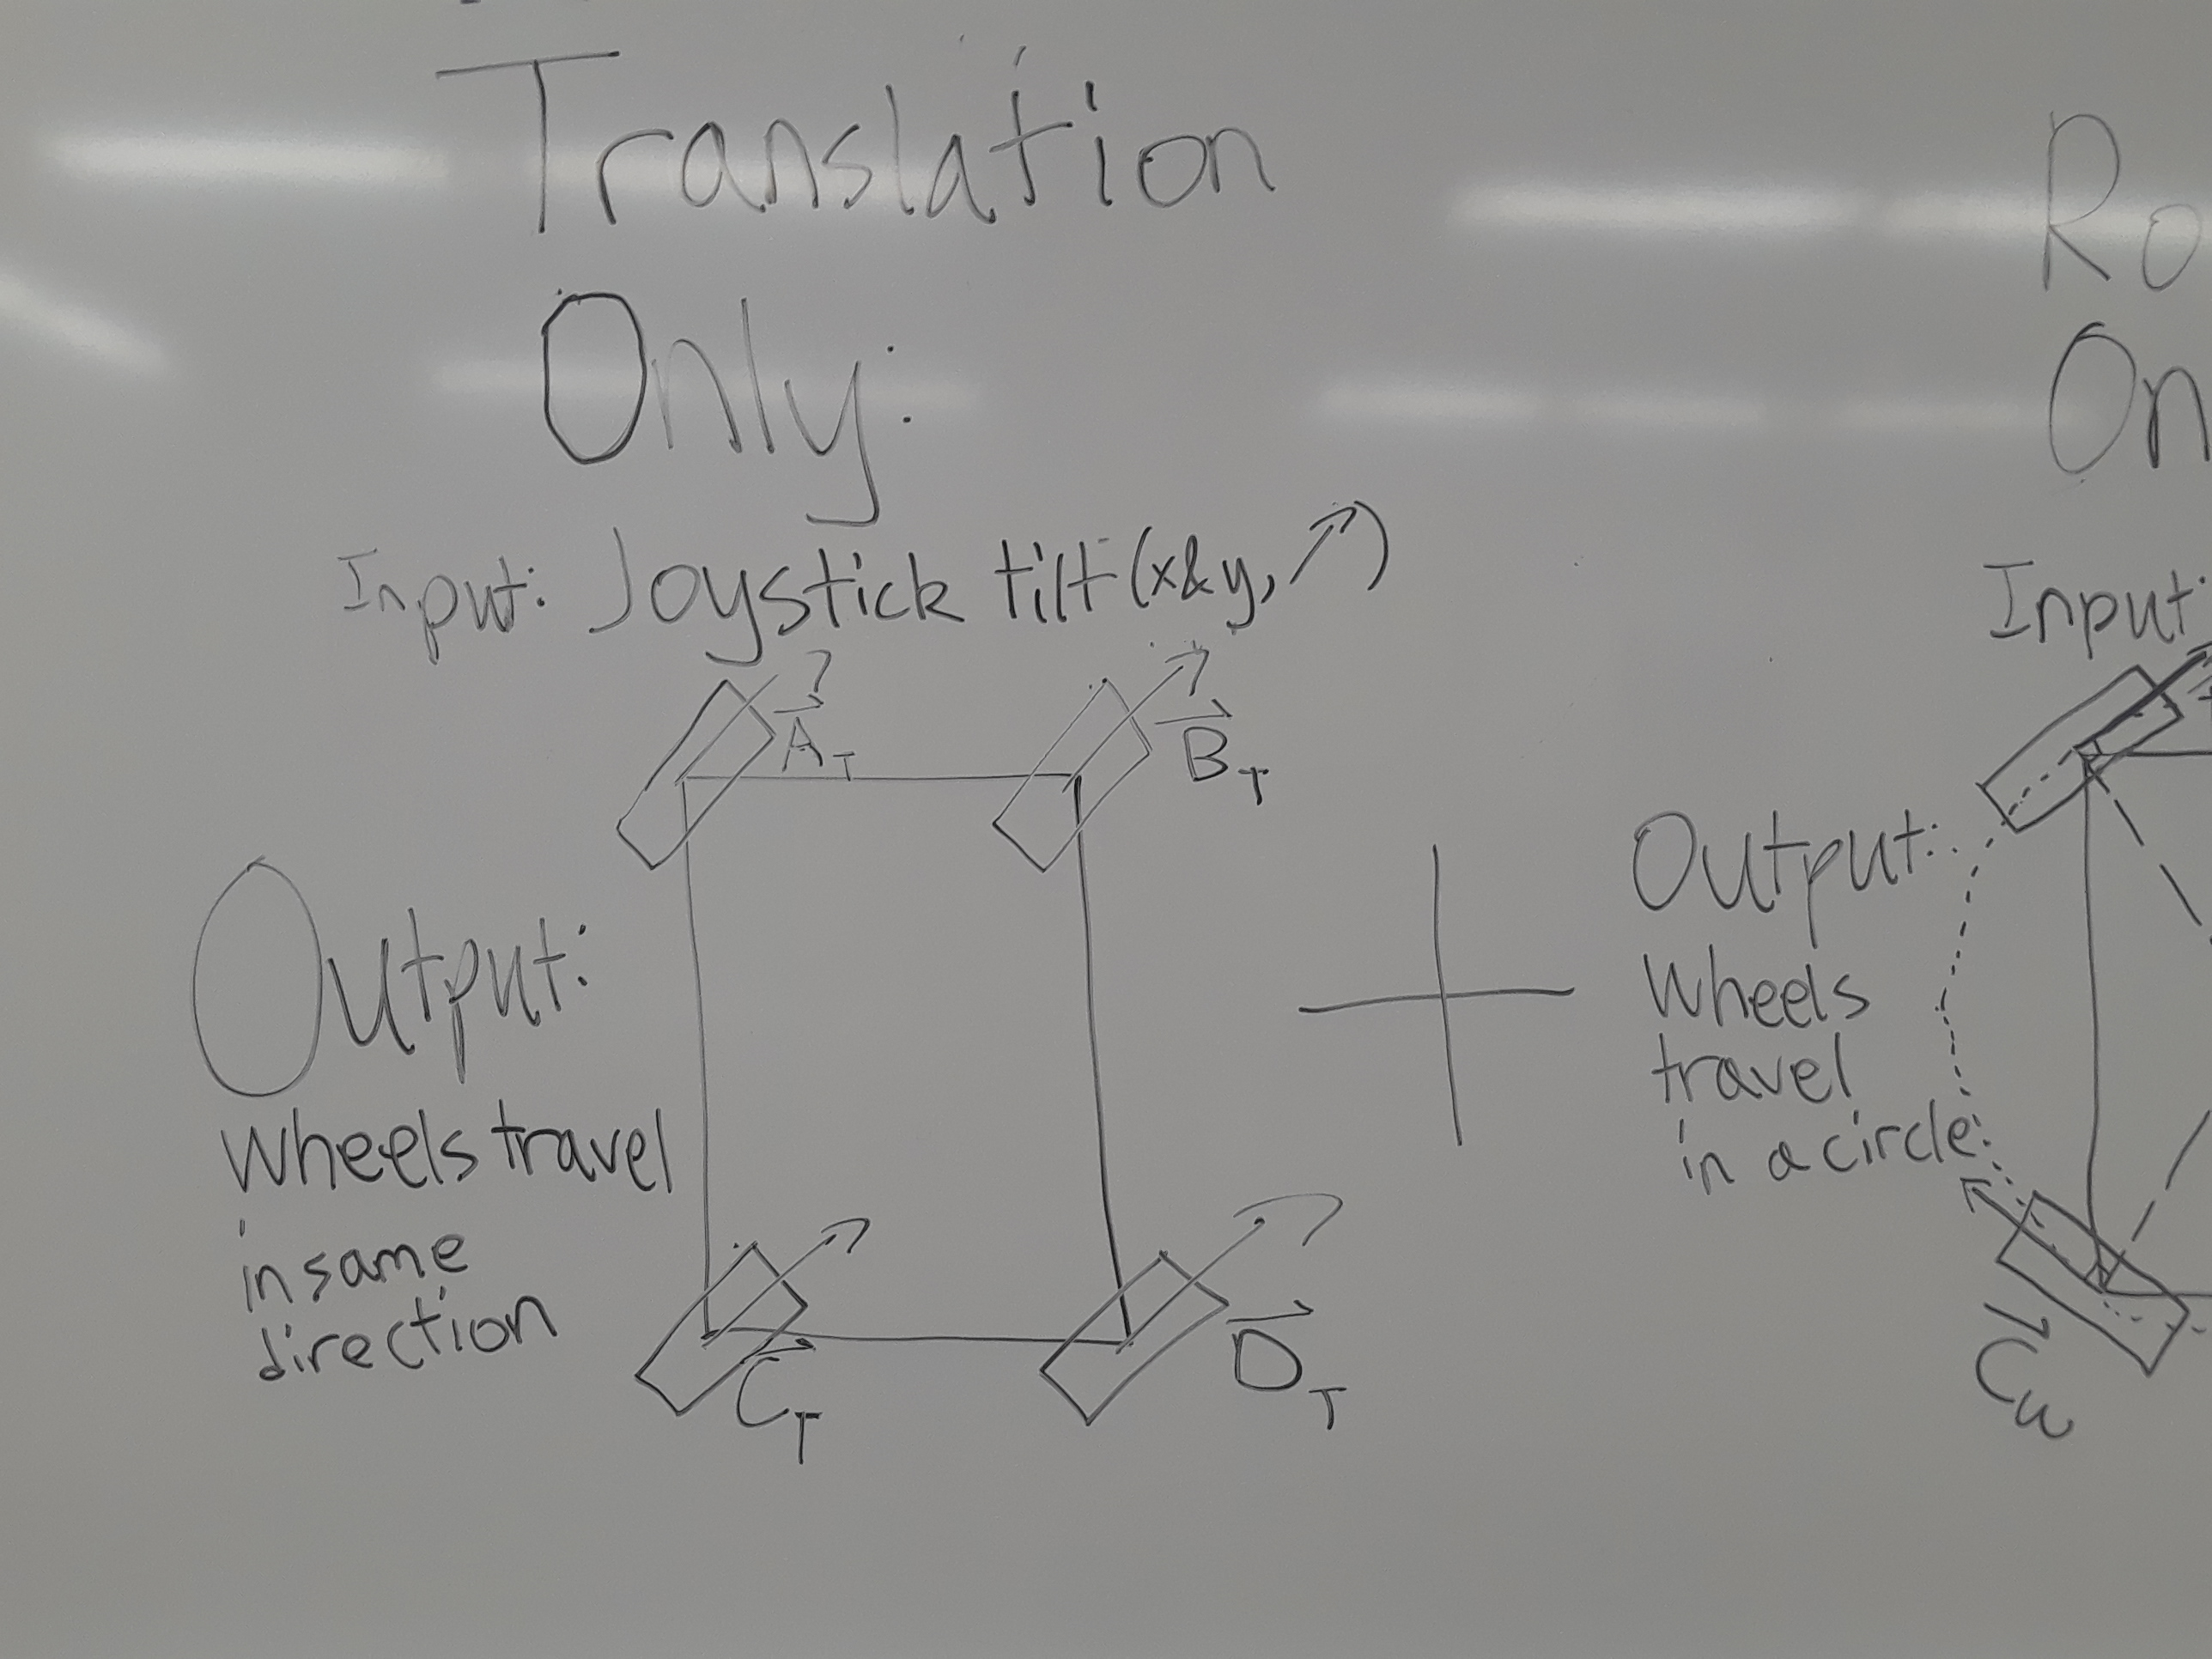 Translation
Only:
Input: Joystick tilt (x&y, ↗)
A_T
B_T
Output:
Wheels travel
in same
direction
C_T
D_T
+
Ro
On
Input:
Output:
Wheels
travel
in a circle
C_ω